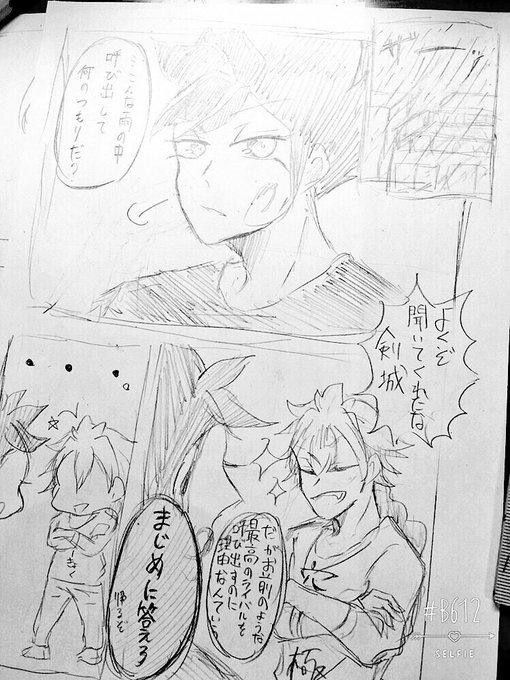 ザーッ
…こんな雨の中
呼び出して
何のつもりだ?
よくぞ
聞いてくれたな
剣城
だがお前のような
最高のライバルを
呼び出すのに
理由なんていら
極
まじめに答えろ
帰るぞ
#B612
SELFIE